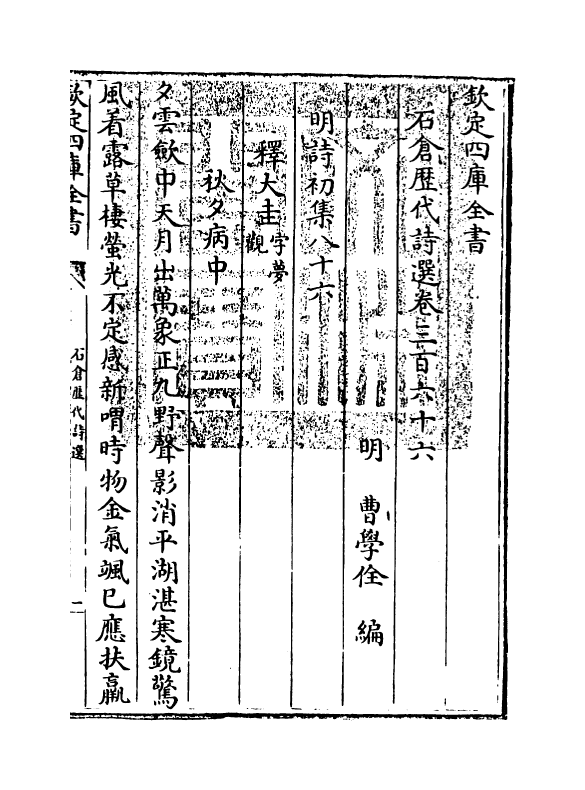 欽定四庫全書
石倉歷代詩選卷三百六十六
明 曹學佺 編
明詩初集八十六
釋大圭字夢觀
秋夕病中
夕雲斂中天月出萬象正九野聲影消平湖湛寒鏡驚
風看露草棲螢光不定感新喟時物金氣颯已應扶羸
欽定四庫全書 石倉歷代詩選 一